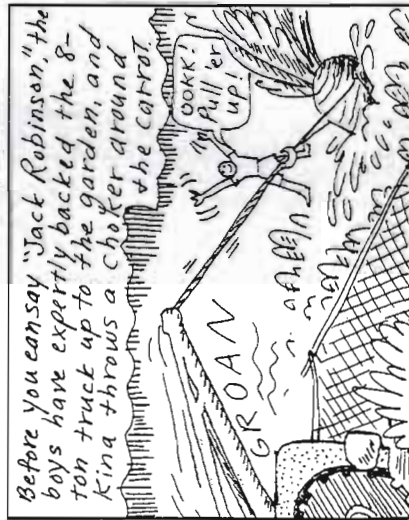 Before you can say "Jack Robinson," the
boys have expertly backed the 8-
ton truck up to the garden, and
Kina throws a choker around
the carrot.
OOKK!
Pull 'er
up!
GROAN